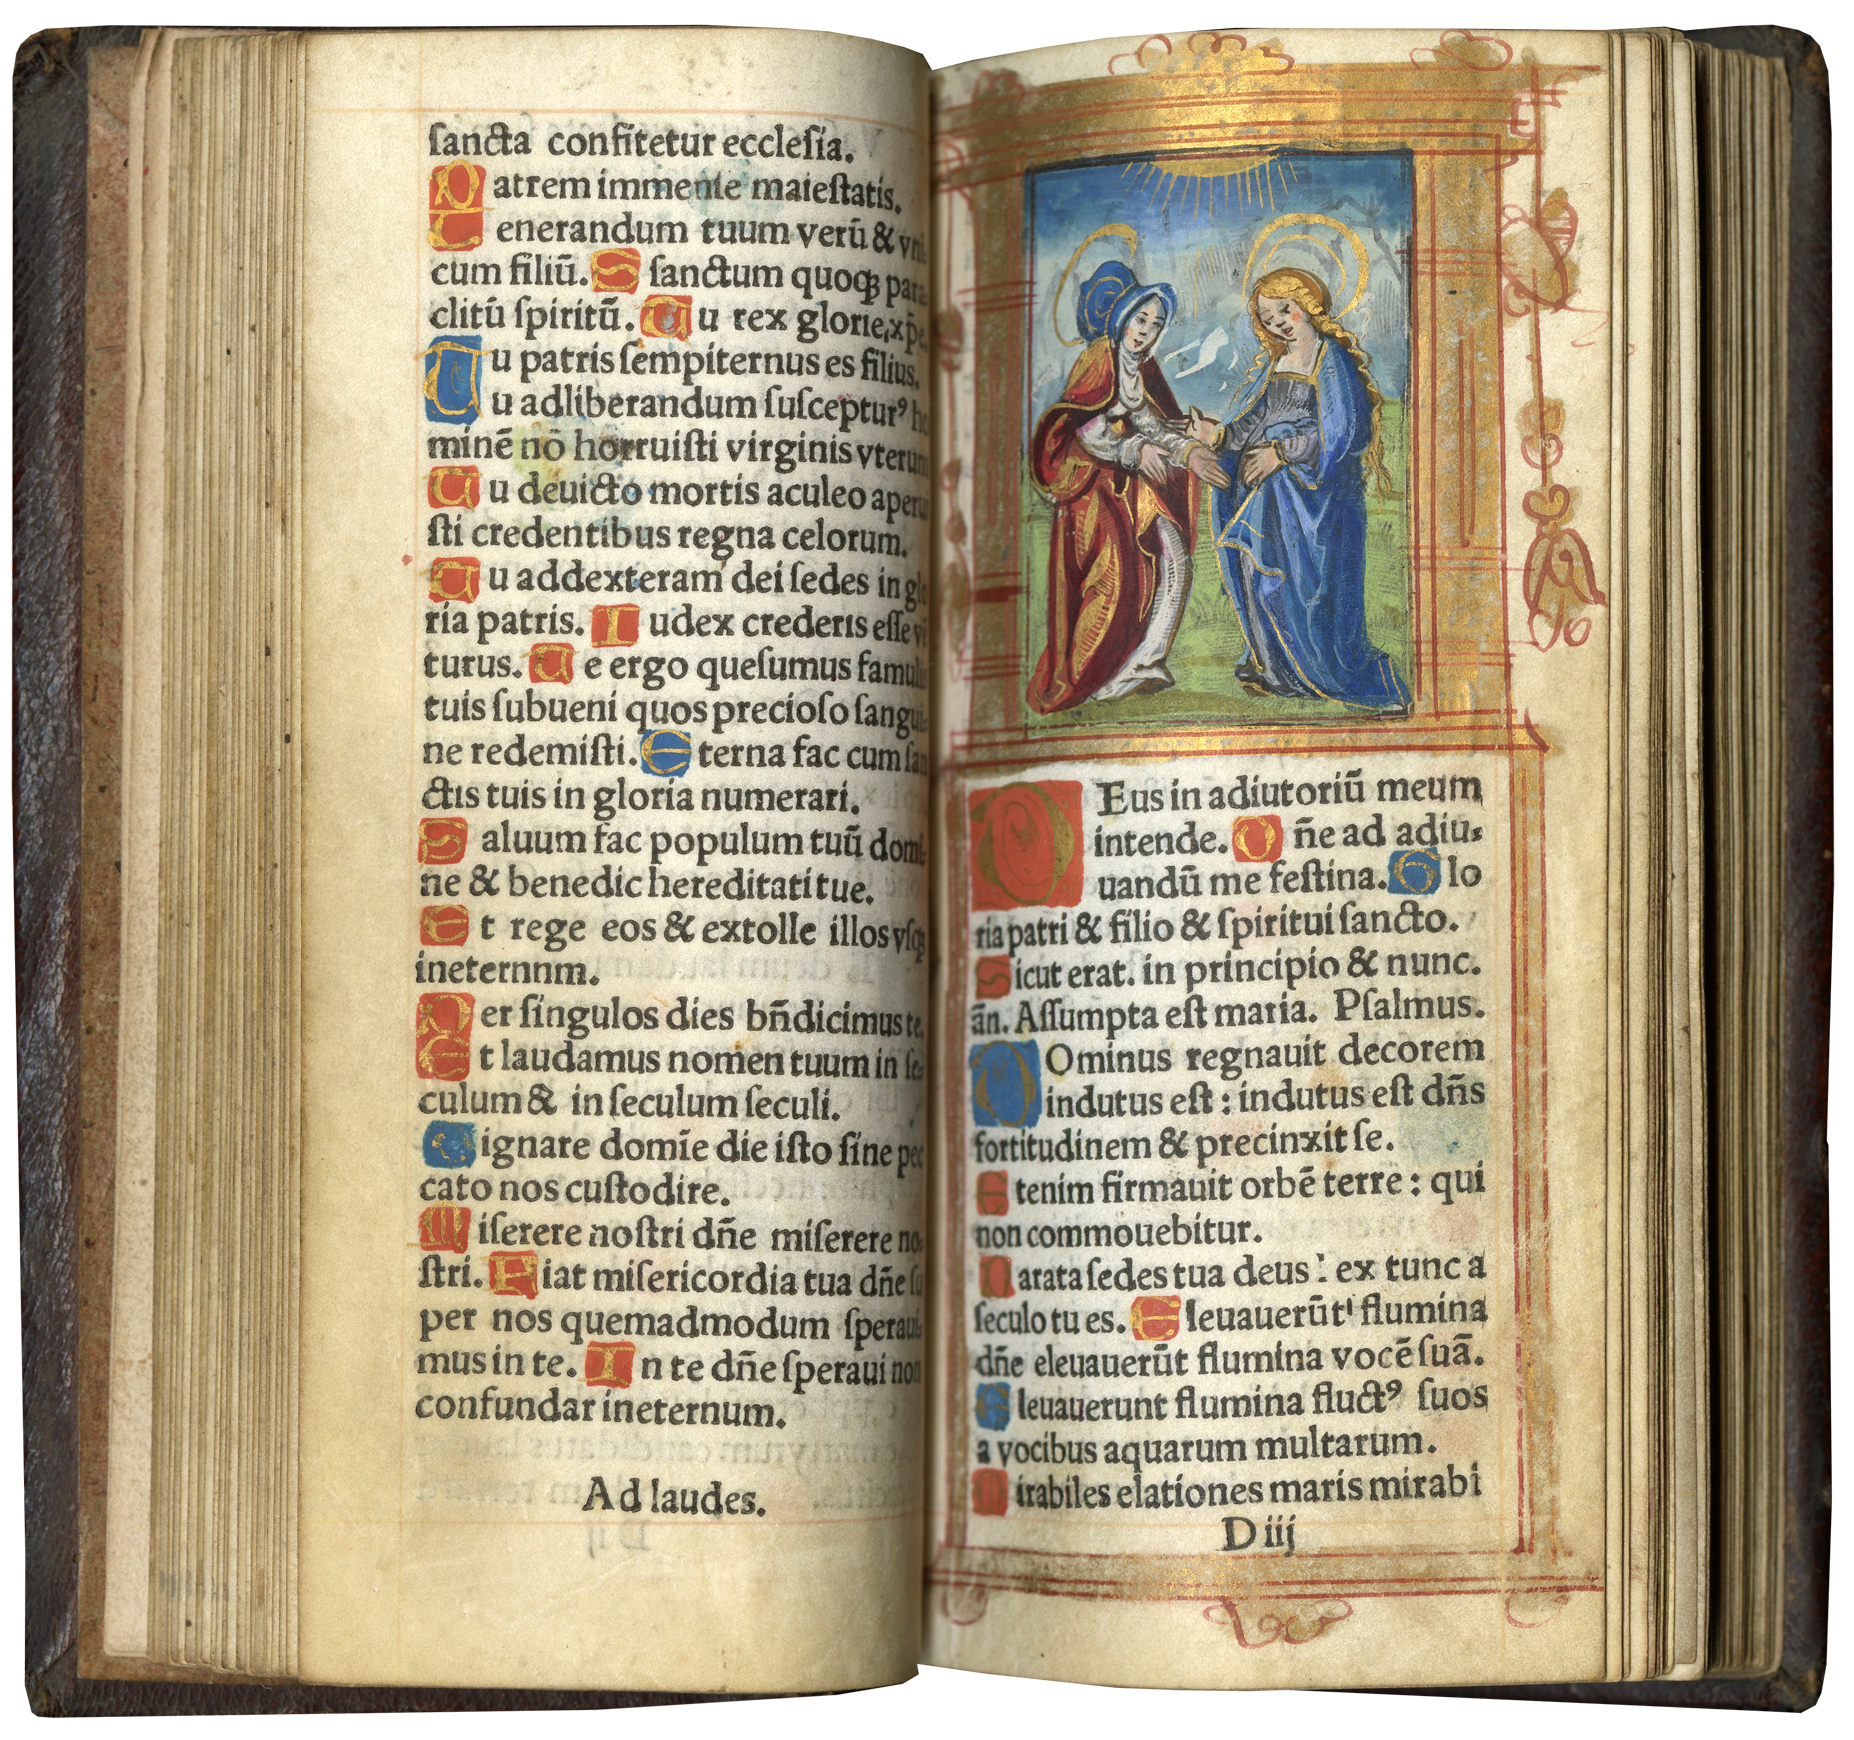 ſancta confitetur eccleſia.
Patrem immenſe maieſtatis.
Venerandum tuum verū & vni
cum filiū. Sſanctum quoqꝫ para
clitū ſpiritū. Tu rex glorie, xp̄e.
Tu patris ſempiternus es filius.
Tu adliberandum ſuſcepturꝰ ho
minē nō horruiſti virginis vterum
Tu deuicto mortis aculeo aperui
ſti credentibus regna celorum.
Tu addexteram dei ſedes in glo
ria patris. Iudex crederis eſſe vē
turus. Te ergo queſumus famulis
tuis ſubueni quos precioſo ſangui-
ne redemiſti. Eterna fac cum ſan
ctis tuis in gloria numerari.
Saluum fac populum tuū domi-
ne & benedic hereditati tue.
Et rege eos & extolle illos vſqꝫ
ineternnm.
Per ſingulos dies bn̄dicimus te.
Et laudamus nomen tuum in ſe-
culum & in ſeculum ſeculi.
Dignare domīe die iſto ſine pec
cato nos cuſtodire.
Miſerere noſtri dn̄e miſerere no-
ſtri. Fiat miſericordia tua dn̄e ſu
per nos quemadmodum ſperaui-
mus in te. In te dn̄e ſperaui non
confundar ineternum.
Ad laudes.
DEus in adiutoriū meum
intende. Dn̄e ad adiu-
uandū me feſtina. Glo
ria patri & filio & ſpiritui ſancto.
Sicut erat. in principio & nunc.
ān. Aſſumpta eſt maria. Pſalmus.
DOminus regnauit decorem
indutus eſt : indutus eſt dn̄s
fortitudinem & precinxit ſe.
Etenim firmauit orbē terre : qui
non commouebitur.
Parata ſedes tua deus : ex tunc a
ſeculo tu es. Eleuauerūt flumina
dn̄e eleuauerūt flumina vocē ſuā.
Eleuauerunt flumina fluctꝰ ſuos
a vocibus aquarum multarum.
Mirabiles elationes maris mirabi
D iij